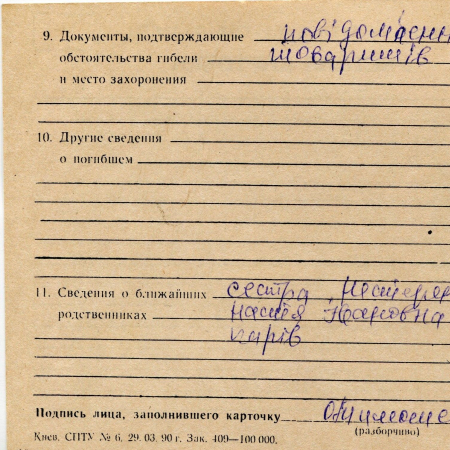 9. Документы, подтверждающие повідомлен
обстоятельства гибели товаришів
и место захоронения
10. Другие сведения
о погибшем
11. Сведения о ближайших сестра
родственниках Настя
Подпись лица, заполнившего карточку
(разборчиво)
Киев. СПТУ № 6. 29. 03. 90 г. Зак. 409—100 000.